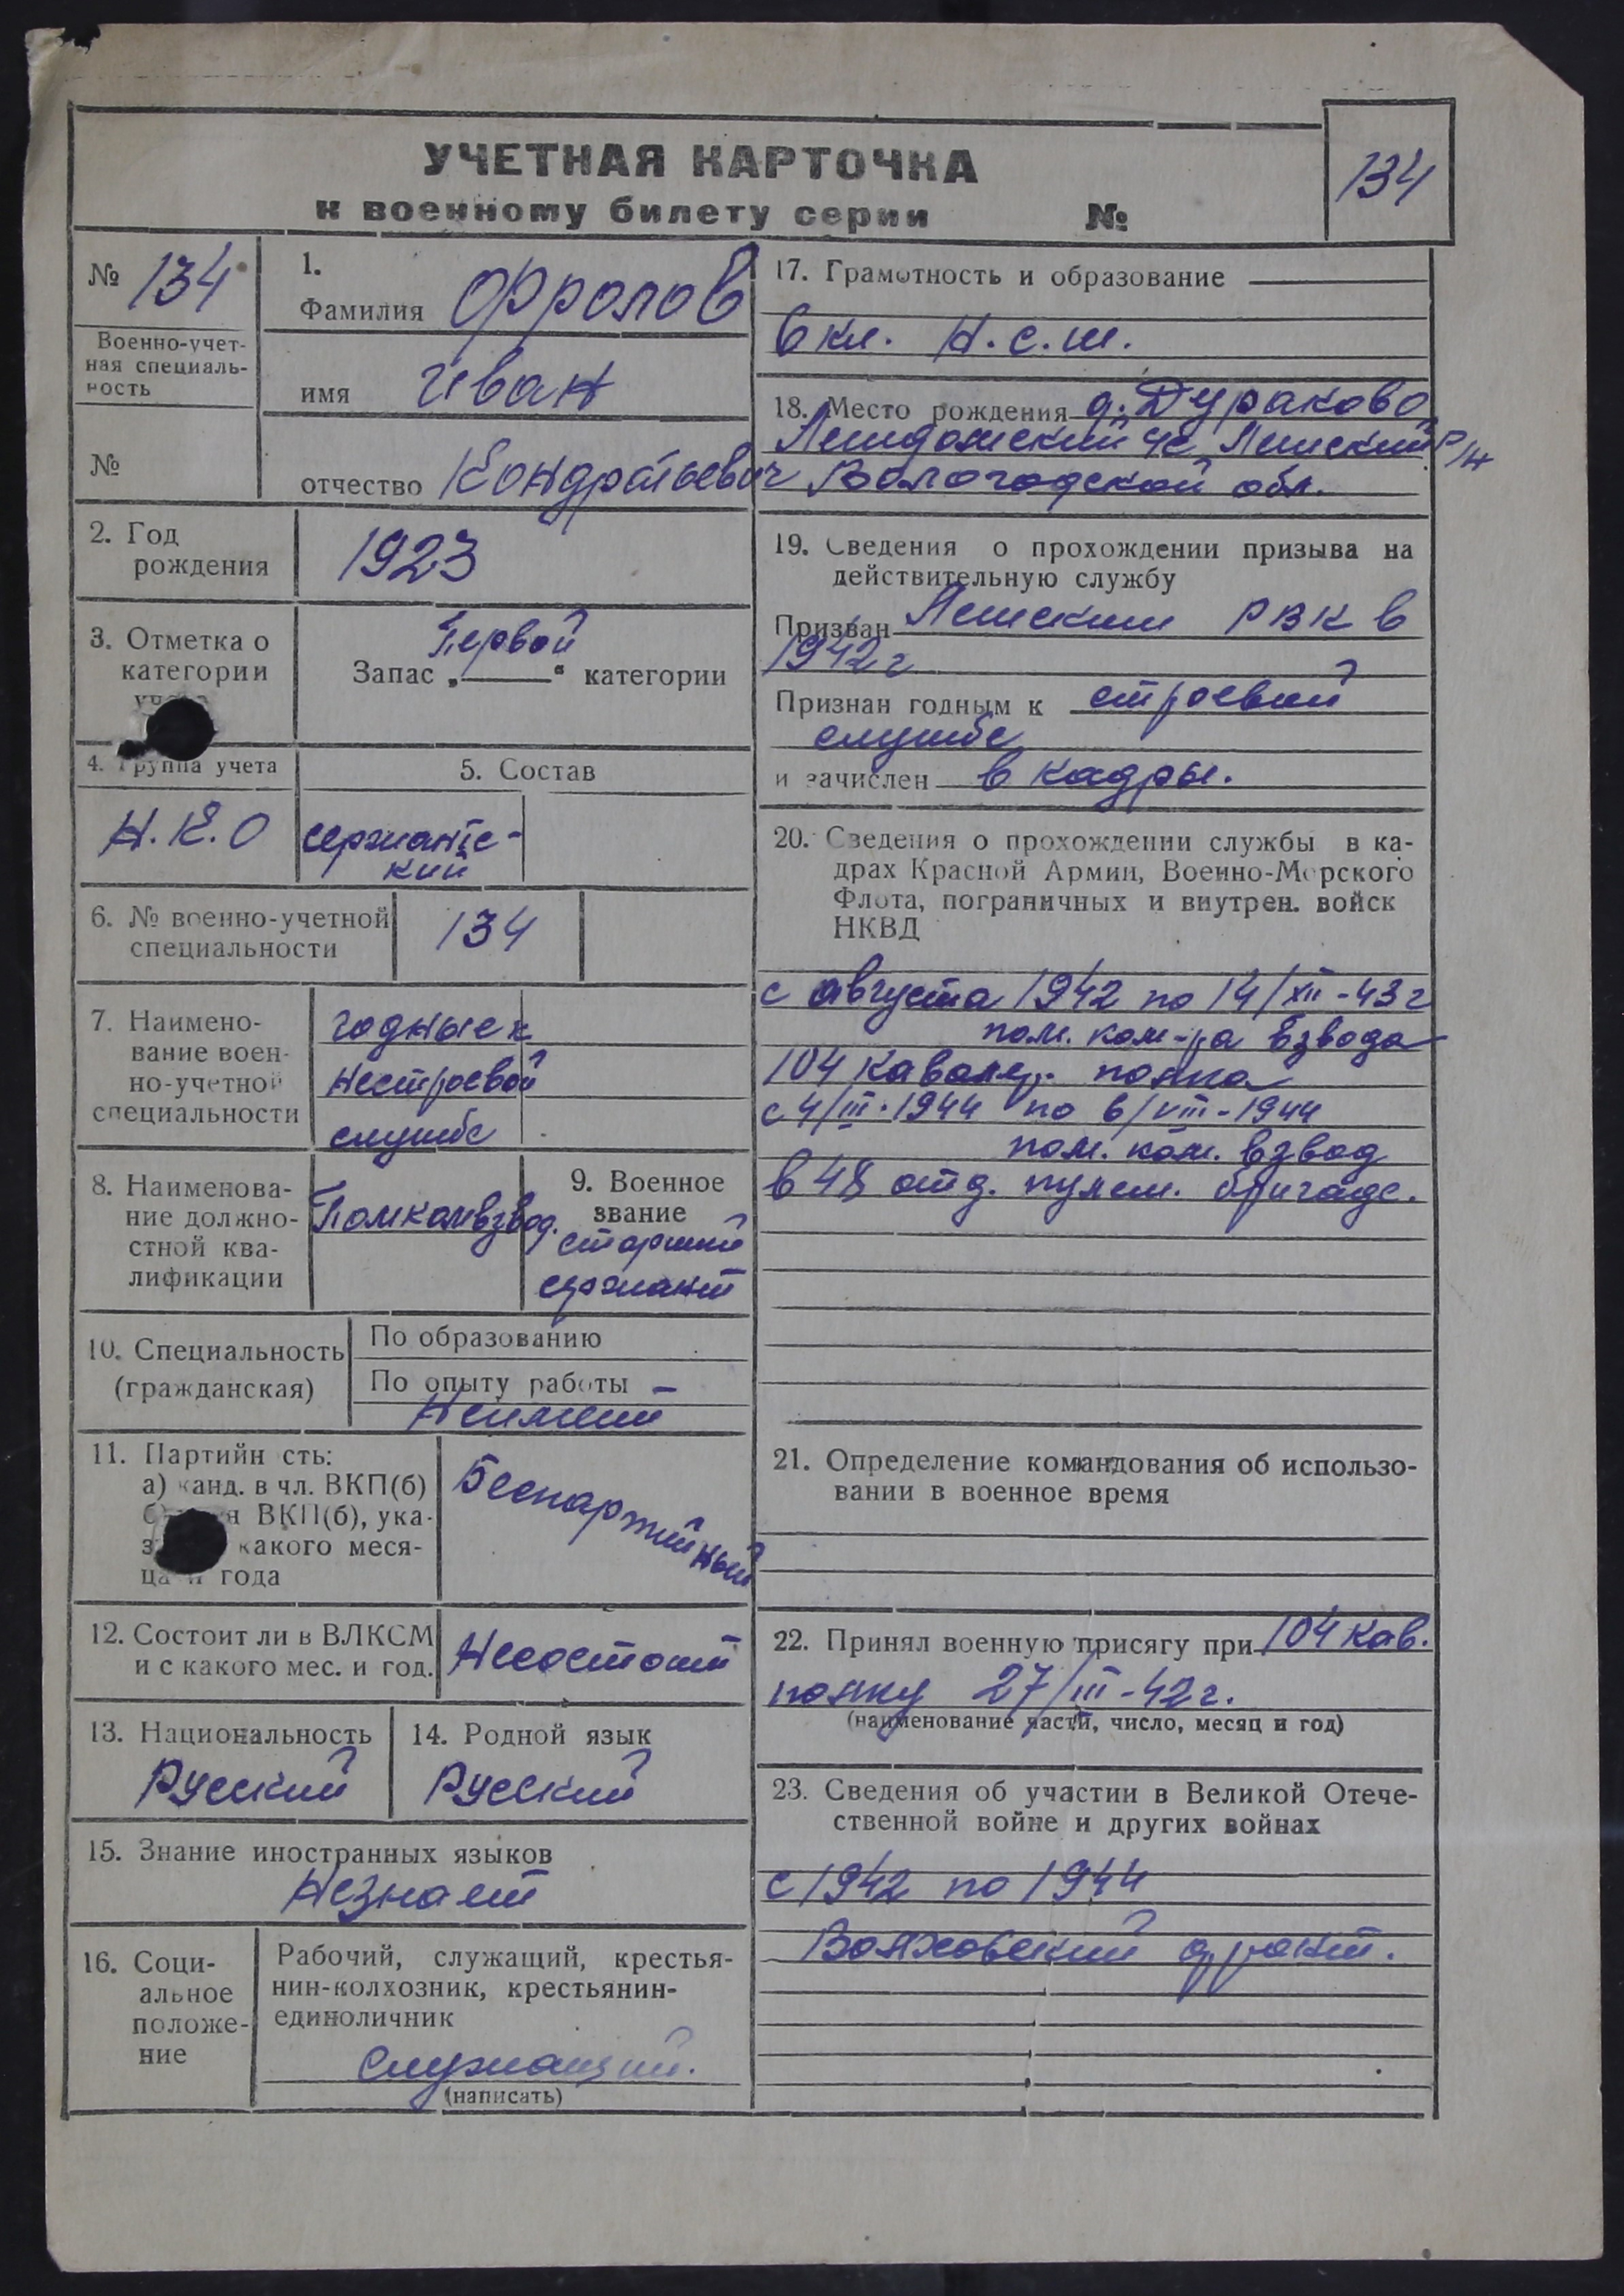 УЧЕТНАЯ КАРТОЧКА
к военному билету серии №
134
№ 134
Военно-учет-
ная специаль-
ность
№
1.
Фамилия Фролов
имя Иван
отчество Кондратьевич
2. Год
рождения
1923
3. Отметка о
категории
Первой
Запас „ “ категории
4. Группа учета
Н.К.О
5. Состав
сержантс-
кий
6. № военно-учетной
специальности
134
7. Наимено-
вание воен-
но-учетной
специальности
годные к
нестроевой
службе
8. Наименова-
ние должно-
стной ква-
лификации
Помкомвзвод.
9. Военное
звание
старший
сержант
10. Специальность
(гражданская)
По образованию
По опыту работы
Неимеет
11. Партийн сть:
а) канд. в чл. ВКП(б)
ВКП(б), ука-
какого меся-
ца и года
Беспартийный
12. Состоит ли в ВЛКСМ
и с какого мес. и год.
Несостоит
13. Национальность
Русский
14. Родной язык
Русский
15. Знание иностранных языков
Незнает
16. Соци-
альное
положе-
ние
Рабочий, служащий, крестья-
нин-колхозник, крестьянин-
единоличник
Служащий.
(написать)
17. Грамотность и образование
6 кл. Н.с.ш.
18. Место рождения д. Дураково
Вологодской обл.
р/н
19. Сведения о прохождении призыва на
действительную службу
Призван Лежским РВК в
1942 г
Признан годным к строевой
службе
и зачислен в кадры.
20. Сведения о прохождении службы в ка-
драх Красной Армии, Военно-Морского
Флота, пограничных и внутрен. войск
НКВД
с августа 1942 по 14/XII-43 г
пом. ком-ра взвода
104 кавалер. полка
с 4/III-1944 по 6/VIII-1944
пом. ком. взвод
в 48 отд. пулем. бригаде.
21. Определение командования об использо-
вании в военное время
22. Принял военную присягу при 104 кав.
полку 27/III-42 г.
(наименование части, число, месяц и год)
23. Сведения об участии в Великой Отече-
ственной войне и других войнах
с 1942 по 1944
Волховский фронт.